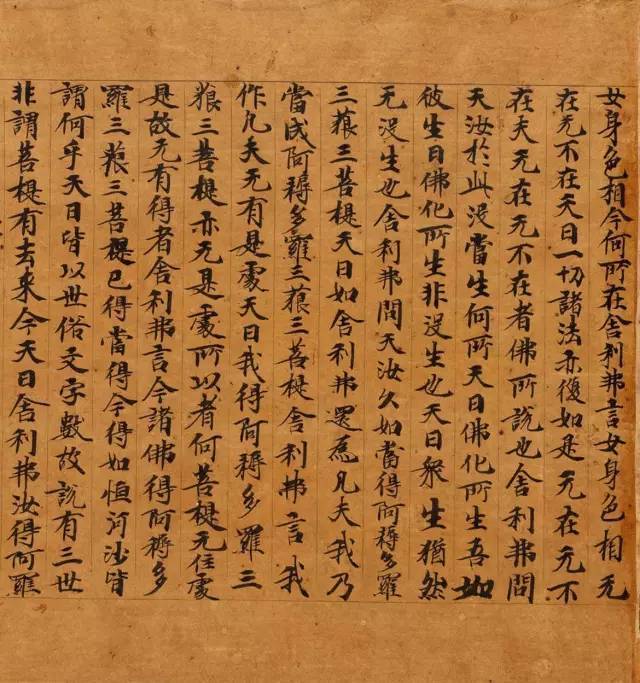 女身色相今何所在舍利弗言女身色相无
在无不在天曰一切諸法亦復如是无在无不
在夫无在无不在者佛所說也舍利弗問
天汝於此沒當生何所天曰佛化所生吾如
彼生曰佛化所生非沒生也天曰衆生猶然
无沒生也舍利弗問天汝久如當得阿耨多羅
三藐三菩提天曰如舍利弗還為凡夫我乃
當成阿耨多羅三藐三菩提舍利弗言我
作凡夫无有是處天曰我得阿耨多羅三
藐三菩提亦无是處所以者何菩提无住處
是故无有得者舍利弗言今諸佛得阿耨多
羅三藐三菩提已得當得今得如恒河沙皆
謂何乎天曰皆以世俗文字數故說有三世
非謂菩提有去來今天曰舍利弗汝得阿羅